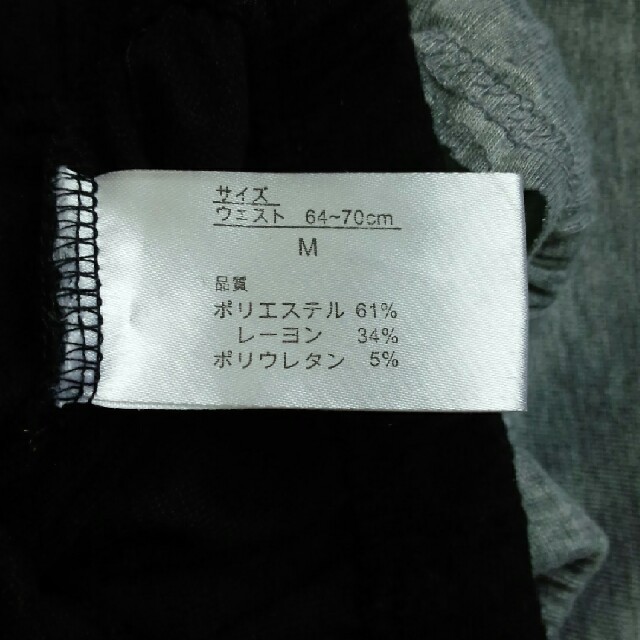 サイズ
ウェスト 64~70cm
M
品質
ポリエステル 61%
レーヨン 34%
ポリウレタン 5%